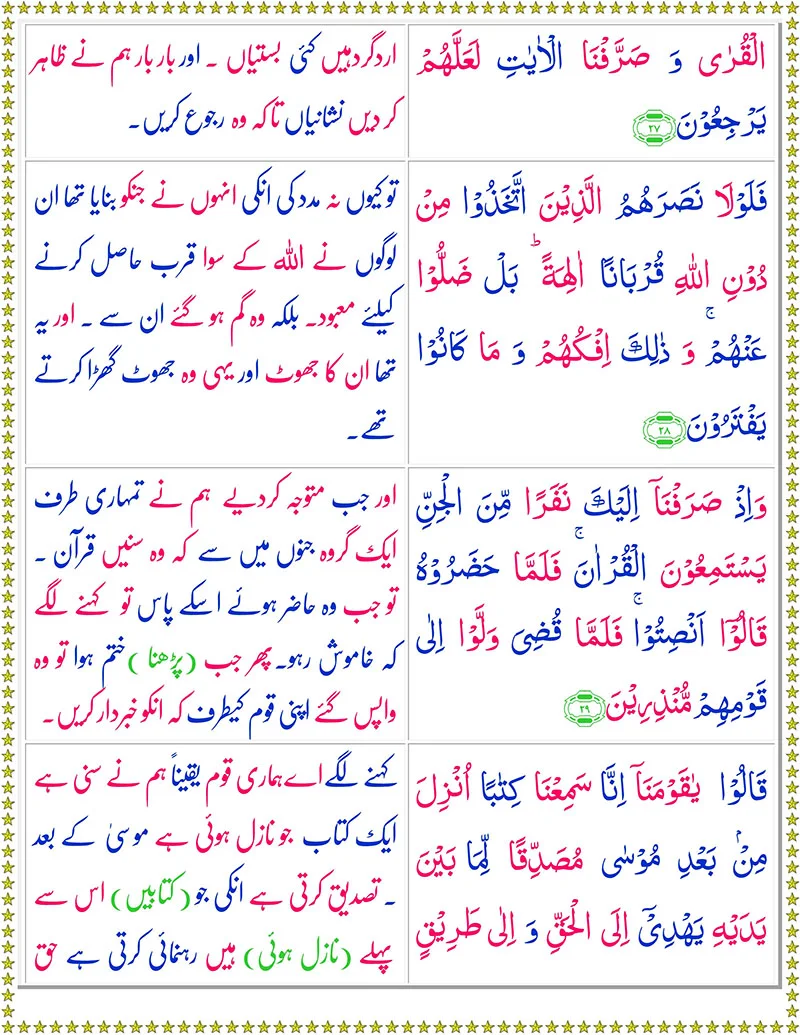 الْقُرٰى وَ صَرَّفْنَا الْاٰیٰتِ لَعَلَّهُمْ
یَرْجِعُوْنَ ﴿۲۷﴾
اردگرد ہیں کئی بستیاں ۔ اور بار بار ہم نے ظاہر
کر دیں نشانیاں تاکہ وہ رجوع کریں۔
فَلَوْلَا نَصَرَهُمُ الَّذِیْنَ اتَّخَذُوْا مِنْ
دُوْنِ اللّٰهِ قُرْبَانًا اٰلِهَةًؕ بَلْ ضَلُّوْا
عَنْهُمْۚ وَ ذٰلِكَ اِفْكُهُمْ وَ مَا كَانُوْا
یَفْتَرُوْنَ ﴿۲۸﴾
تو کیوں نہ مدد کی انکی انہوں نے جنکو بنایا تھا ان
لوگوں نے اللہ کے سوا قرب حاصل کرنے
کیلئے معبود۔ بلکہ وہ گم ہو گئے ان سے ۔ اور یہ
تھا ان کا جھوٹ اور یہی وہ جھوٹ گھڑا کرتے
تھے۔
وَاِذْ صَرَفْنَاۤ اِلَیْكَ نَفَرًا مِّنَ الْجِنِّ
یَسْتَمِعُوْنَ الْقُرْاٰنَۚ فَلَمَّا حَضَرُوْهُ
قَالُوْۤا اَنْصِتُوْاۚ فَلَمَّا قُضِیَ وَلَّوْا اِلٰى
قَوْمِهِمْ مُّنْذِرِیْنَ ﴿۲۹﴾
اور جب متوجہ کردیے ہم نے تمہاری طرف
ایک گروہ جنوں میں سے کہ وہ سنیں قرآن ۔
تو جب وہ حاضر ہوئے اسکے پاس تو کہنے لگے
کہ خاموش رہو۔ پھر جب (پڑھنا) ختم ہوا تو وہ
واپس گئے اپنی قوم کیطرف کہ انکو خبردار کریں۔
قَالُوْا یٰقَوْمَنَاۤ اِنَّا سَمِعْنَا كِتٰبًا اُنْزِلَ
مِنْۢ بَعْدِ مُوْسٰى مُصَدِّقًا لِّمَا بَیْنَ
یَدَیْهِ یَهْدِیْۤ اِلَى الْحَقِّ وَ اِلٰى طَرِیْقٍ
کہنے لگے اے ہماری قوم یقیناً ہم نے سنی ہے
ایک کتاب جو نازل ہوئی ہے موسیٰ کے بعد
۔ تصدیق کرتی ہے انکی جو (کتابیں) اس سے
پہلے (نازل ہوئی) ہیں رہنمائی کرتی ہے حق